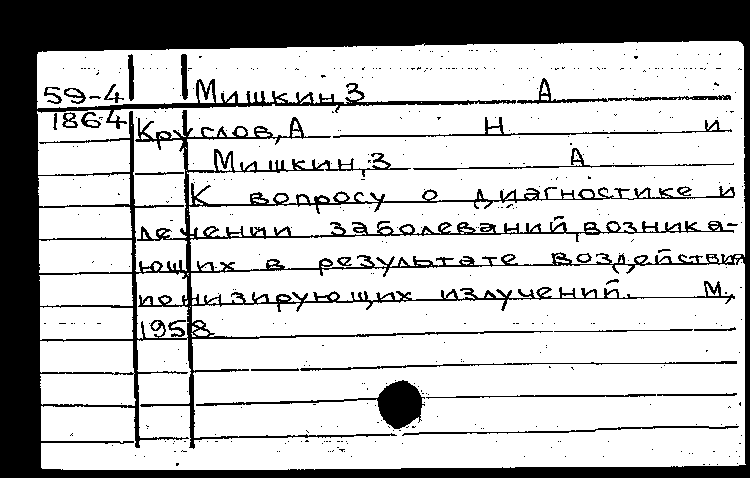 59-4 Мишкин, З А
1864 Круслов, А Н и
Мишкин, З А
К вопросу о диагностике и
лечении заболеваний, возника-
ющих в результате воздействия
ионизирующих излучений. М,
1958